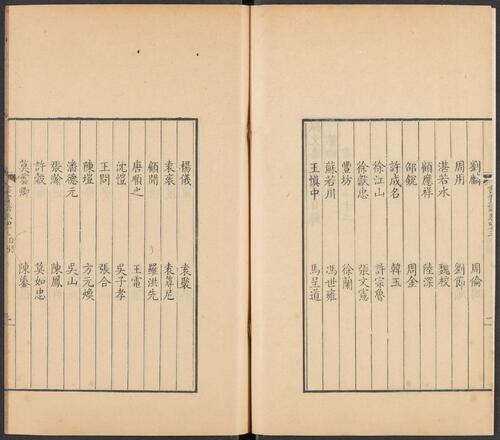 劉麟 周倫
周用 劉節
湛若水 魏校
顧應祥 陸深
邵銳 周金
許成名 韓玉
徐江山 許宗魯
徐獻忠 張文憲
豐坊 徐蘭
蘇若川 馮世雍
王慎中 馬呈道
楊儀 袁褧
袁袠 袁尊尼
顧聞 羅洪先
唐順之 王電
沈愷 吳子孝
王問 張合
陳塏 方元煥
潘德元 吳山
張瀚 陳鳳
許穀 莫如忠
莫雲卿 陳鎏